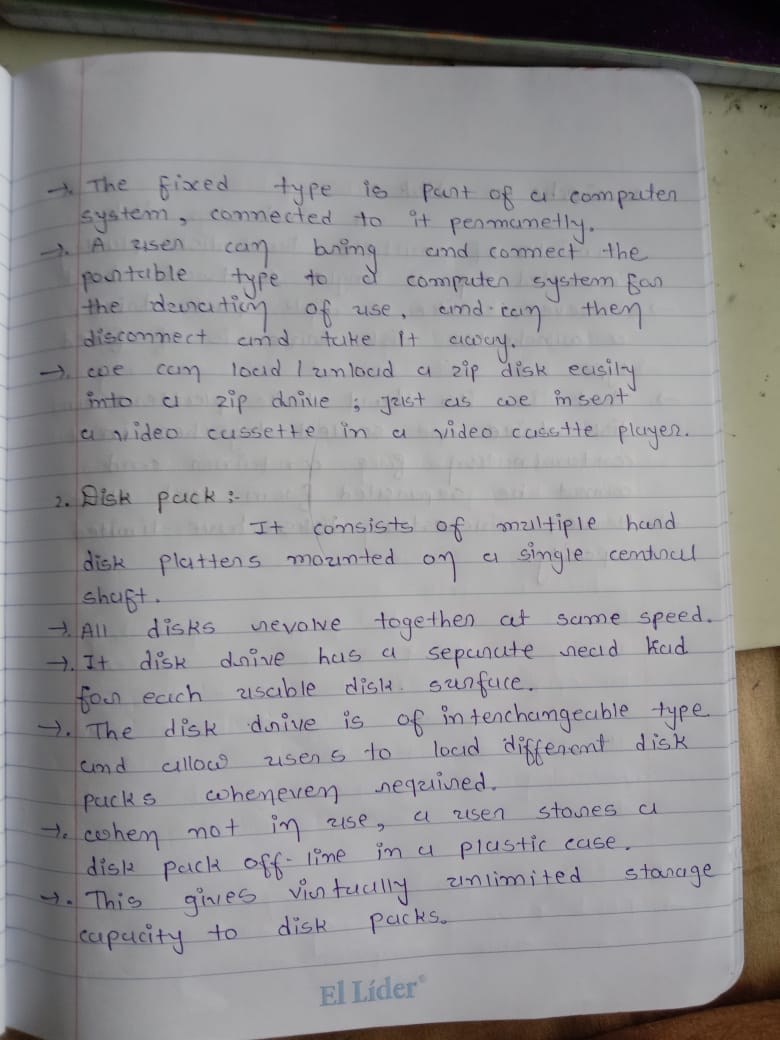 →. The fixed type is part of a computer
system, connected to it permanetly.
→. A user can bring and connect the
portable type to a computer system for
the duration of use, and can then
disconnect and take it away.
→. we can load / unload a zip disk easily
into a zip drive ; just as we insert
a video cassette in a video casstte player.
2. Disk pack :-
It consists of multiple hard
disk platters mounted on a single central
shaft.
→. All disks revolve together at same speed.
→. It disk drive has a separate read
for each usable disk surface.
→. The disk drive is of interchangeable type
and allow users to load different disk
packs whenever required.
→. when not in use, a user stores a
disk pack off-line in a plastic case.
→. This gives virtually unlimited storage
capacity to disk packs.
El Líder®